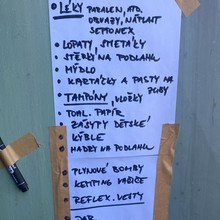 LÉKY PARALEN, ATD.
OBVAZY, NÁPLAST
SEPTONEX
LOPATY, SMETÁČKY
STĚRKY NA PODLAHU
MÝDLO
KARTÁČKY A PASTY NA
ZUBY
TAMPÓNY, VLOŽKY
TOAL. PAPÍR
ZÁSYPY DĚTSKÉ
KÝBLE
HADRY NA PODLAHU
PLYNOVÉ BOMBY
KEMPING VAŘIČE
REFLEX. VESTY